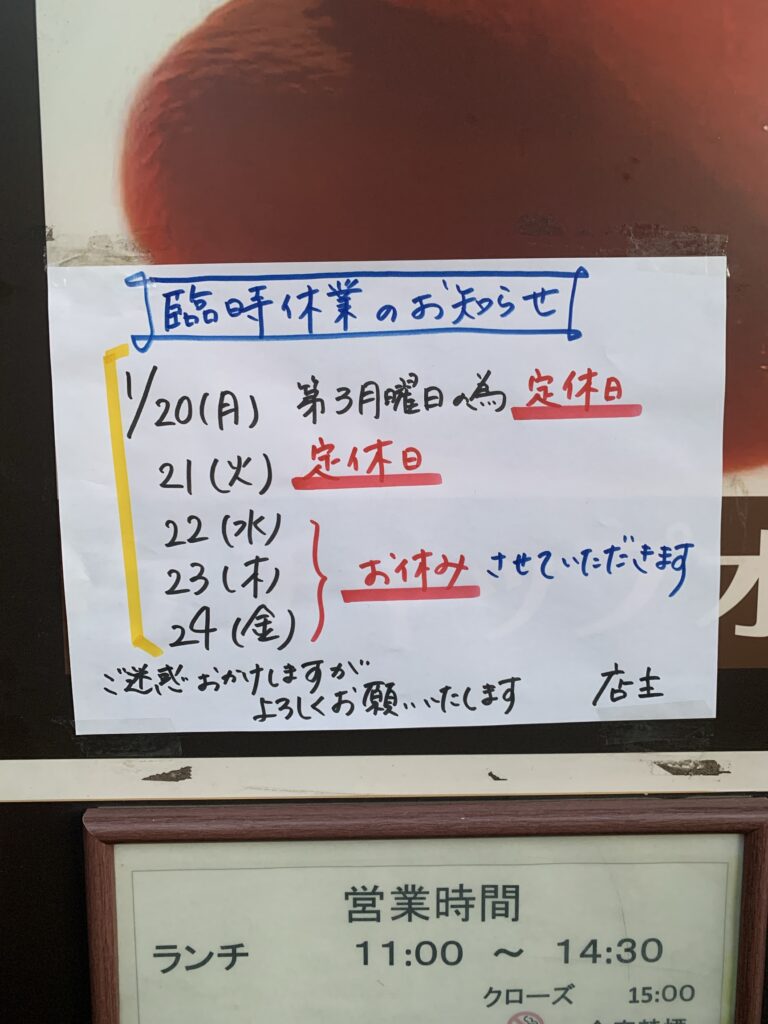 臨時休業のお知らせ
1/20(月) 第3月曜日の為 定休日
21(火) 定休日
22(水)
23(木) お休み させていただきます
24(金)
ご迷惑おかけしますが
よろしくお願いいたします 店主
営業時間
ランチ 11:00 〜 14:30
クローズ 15:00